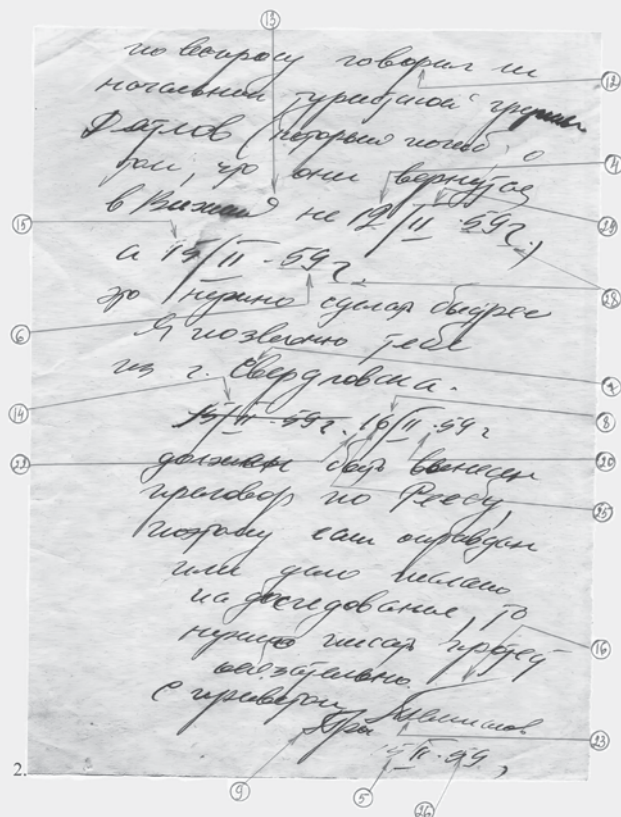 13
по вопросу говорил ли
12
начальник туристской группы
Дятлов (который погиб) о
том, что они вернутся
11
29
в Вижай не 12/II-59г.,
15
а 15/II-59г.
28
это нужно сделать быстрее
6
Я позвоню тебе
7
из г. Свердловска.
14
8
15/II-59г. 16/II-59г
22
20
должен быть вынесен
25
приговор по Реесу,
поэтому если оправдан
или дело послано
на доследование, то
16
нужно писать протест
обязательно.
С приветом
23
Про
9
5
15/II-59,
26
2.